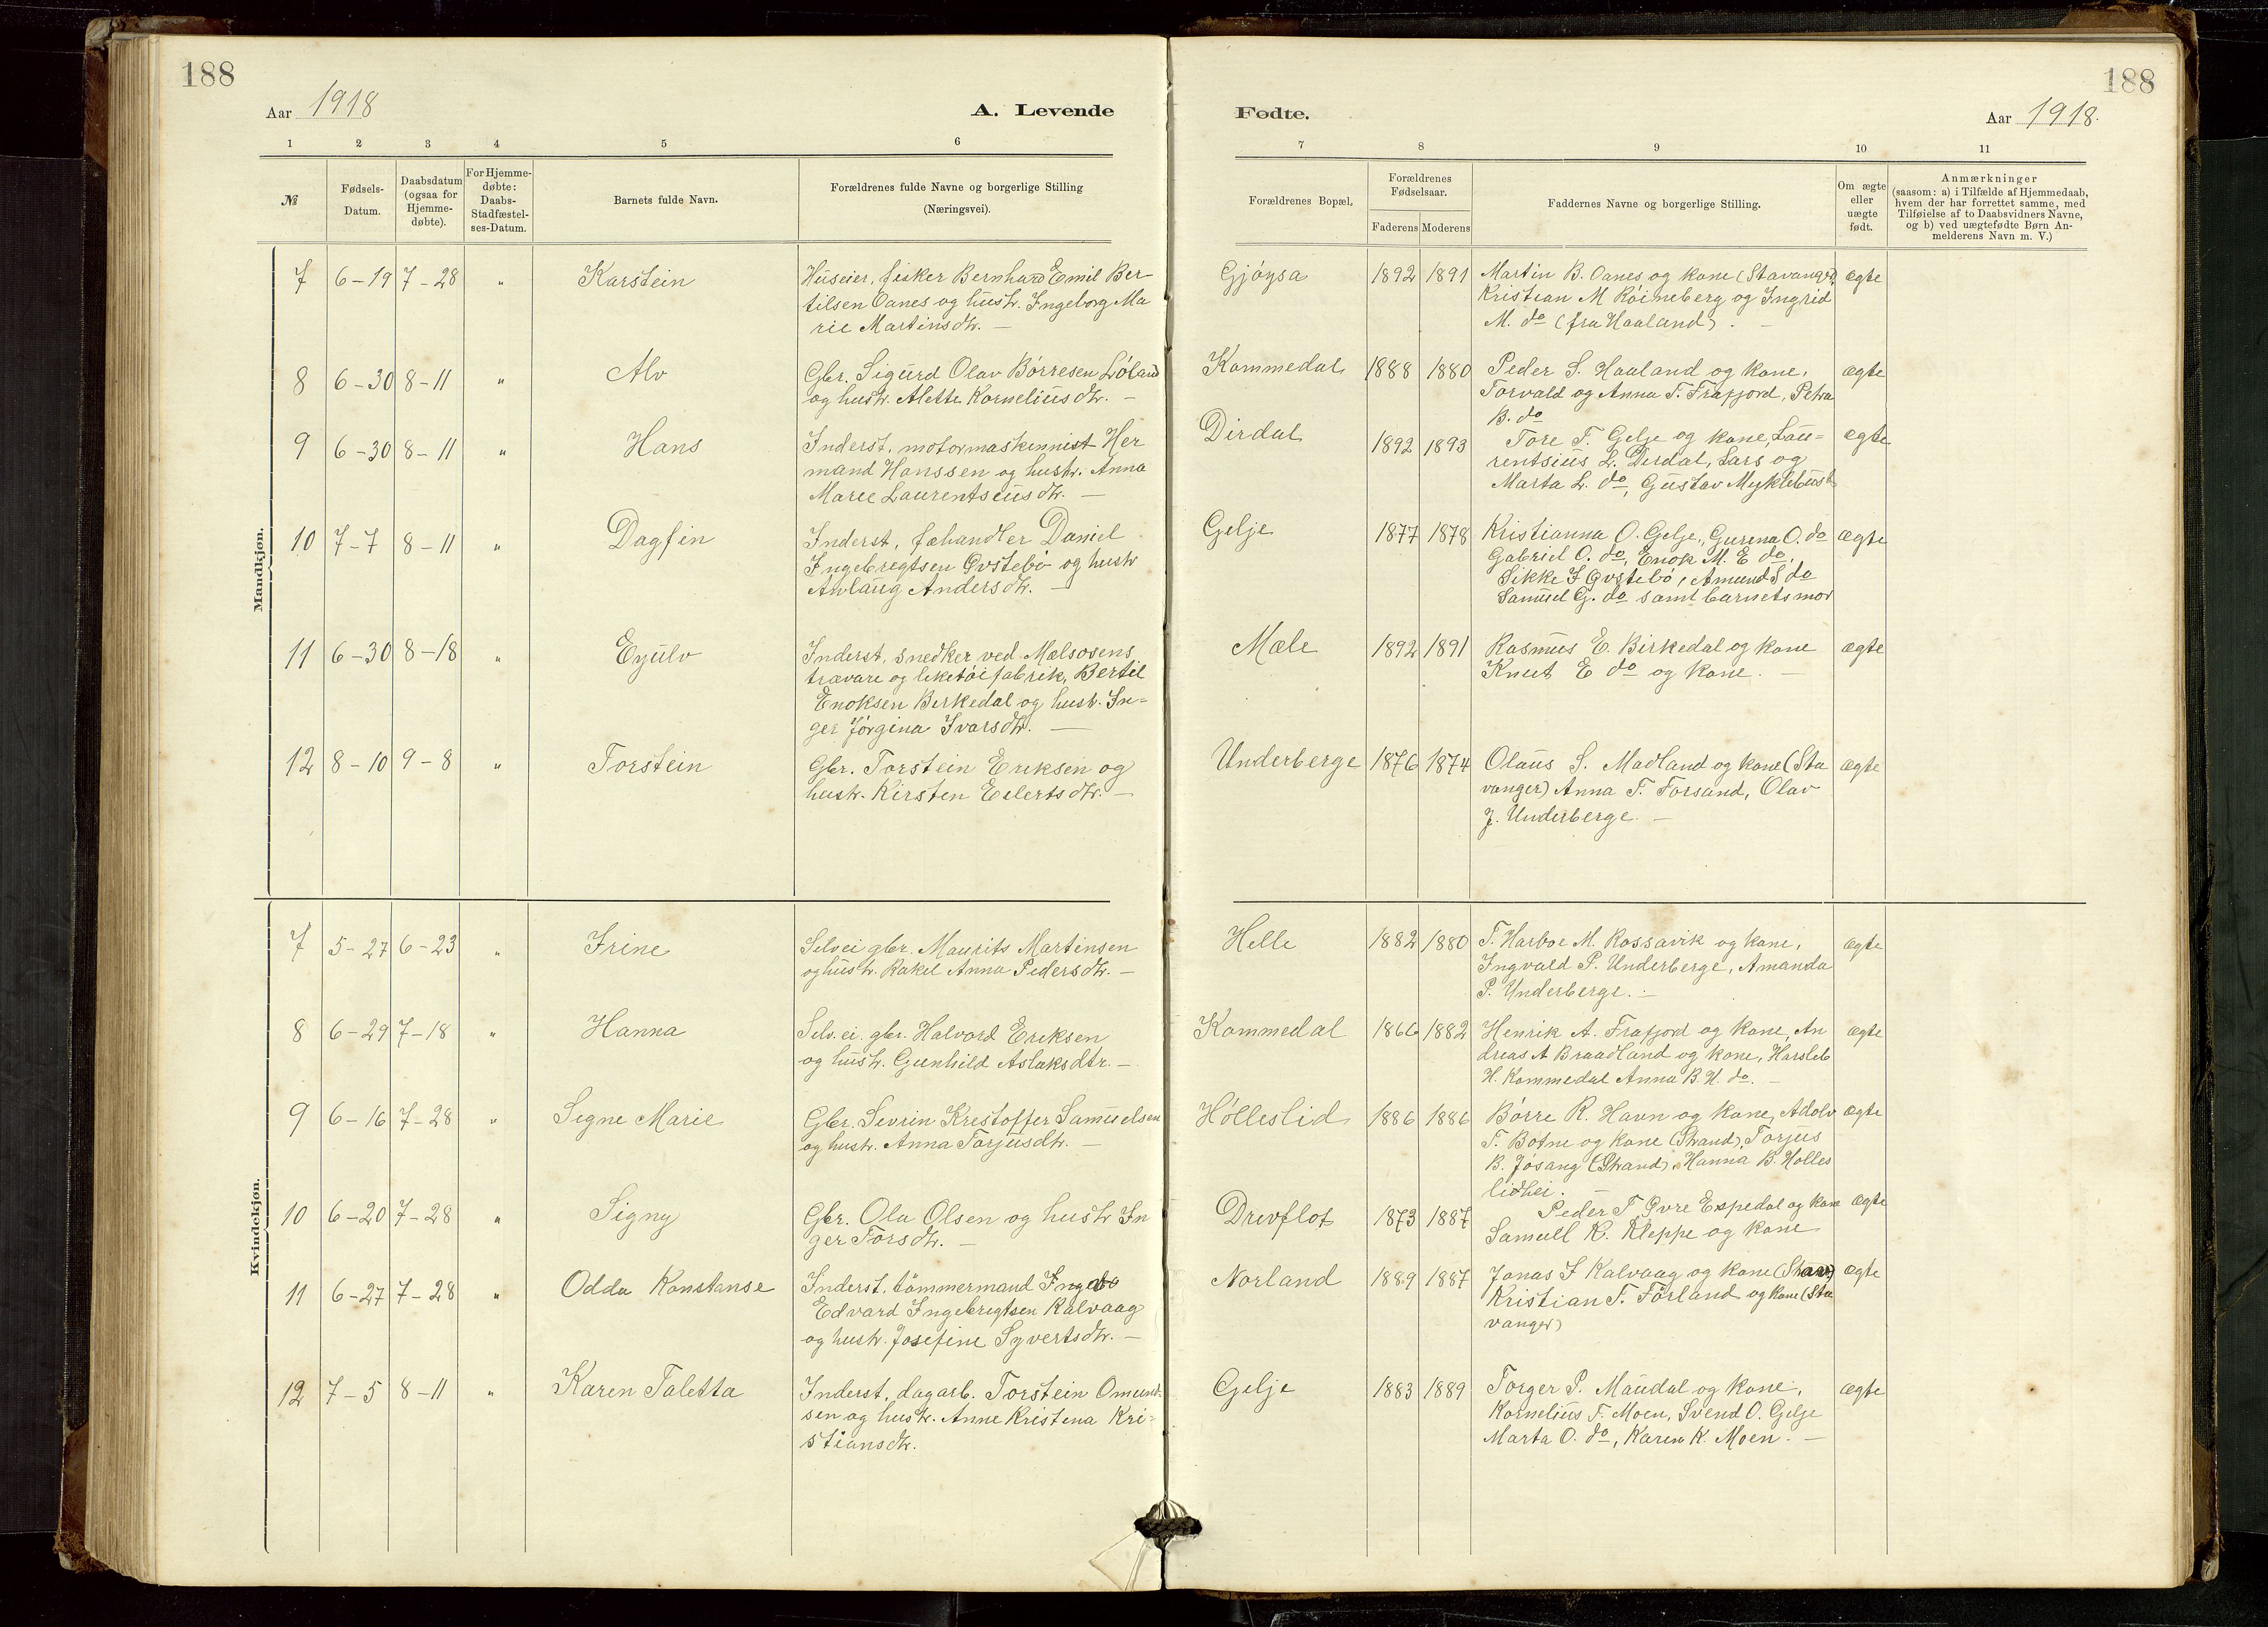 188
188
Aar 1918
A. Levende
Fødte.
Aar 1918.
1 2 3 4 5 6 7 8 9 10 11
№
Fødsels-
Datum.
Daabsdatum
(ogsaa for
Hjemme-
døbte).
For Hjemme-
døbte:
Daabs-
Stadfæstel-
ses-Datum.
Barnets fulde Navn.
Forældrenes fulde Navne og borgerlige Stilling
(Næringsvei).
Forældrenes Bopæl.
Forældrenes
Fødselsaar.
Faderens Moderens
Faddernes Navne og borgerlige Stilling.
Om ægte
eller
uægte
født.
Anmærkninger
(saasom: a) i Tilfælde af Hjemmedaab,
hvem der har forrettet samme, med
Tilføielse af to Daabsvidners Navne,
og b) ved uægtefødte Børn An-
melderens Navn m. V.)
Mandkjøn.
7 6-19 7-28 " Karstein
Huseier, fisker Bernhard Emil Ber-
tilsen Oanes og hustr. Ingeborg Ma
rie Martinsdtr. —
Gjøysa 1892 1891
Martin B. Oanes og kone (Stavanger),
Kristian M Röineberg og Ingrid
M. do (fra Haaland). —
ægte
8 6-30 8-11 " Alv
Gbr. Sigurd Olav Börresen Löland
og hustr. Alette Korneliusdtr. —
Kommedal 1888 1880
Peder S. Haaland og kone,
Torvald og Anna T. Frafjord, Petra
B. do
ægte
9 6-30 8-11 " Hans
Inderst, motormaskinnist Her
mand Hanssen og hustr. Anna
Marie Laurentseusdtr. —
Dirdal 1892 1893
Tore T. Gelje og kone, Lau=
rentsius L. Dirdal, Lars og
Marta L. do, Gustav Myklebust
ægte
10 7-7 8-11 " Dagfin
Inderst, fæhandler Daniel
Ingebregtsen Övstebö og hustr
Anlaug Andersdtr. —
Gelje 1877 1878
Kristianna O. Gelje, Gurena O. do
Gabriel O. do, Enok M. E do,
Sikke I Övstebö, Amund S do
Samuel G. do samt barnets mor
ægte
11 6-30 8-18 " Eyulv
Inderst, snedker ved Mælsosens
trævare og leketöifabrik, Bertil
Enoksen Birkedal og hustr. In-
ger Jörgina Ivarsdtr. —
Mæle 1892 1891
Rasmus E. Birkedal og kone
Knut E do og kone. —
ægte
12 8-10 9-8 " Torstein
Gbr. Torstein Eriksen og
hustr. Kirsten Eilertsdtr. —
Underberge 1876 1874
Olaus S. Madland og kone (Sta
vanger) Anna T. Forsand, Olav
J. Underberge. —
ægte
Kvindekjøn.
7 5-27 6-23 " Irine
Selvei gbr. Maurits Martinsen
og hustr. Rakel Anna Pedersdtr. —
Helle 1882 1880
T. Harboe M. Rossavik og kone,
Ingvald P. Underberge, Amanda
P. Underberge. —
ægte
8 6-29 7-18 " Hanna
Selv.ei. gbr. Halvord Eriksen
og hustr. Gunhild Aslaksdtr. —
Kommedal 1866 1882
Henrik A. Frafjord og kone, An
dreas A Braadland og kone, Harsleb
H. Kommedal Anna B. H. do. —
ægte
9 6-16 7-28 " Signe Marie
Gbr. Sevrin Kristoffer Samuelsen
og hustr. Anna Torjusdtr. —
Hölleslid 1886 1886
Börre R. Havn og kone, Adolv
T. Botne og kone (Strand), Torjus
B. Jösang (Strand), Hanna B. Hölles
lidhei. —
ægte
10 6-20 7-28 " Signy
Gbr. Ola Olsen og hustr In
ger Torsdtr. —
Drevflot 1873 1887
Peder T Övre Espedal og kone
Samuel K. Kleppe og kone
ægte
11 6-27 7-28 " Odda Konstanse
Inderst, tömmermand
Edvard Ingebregtsen Kalvaag
og hustr. Josefine Syvertsdtr. —
Norland 1889 1887
Jonas I Kalvaag og kone
Kristian T. Förland og kone (Sta
vanger)
ægte
12 7-5 8-11 " Karen Taletta
Inderst, dagarb. Torstein Omund-
sen og hustr. Anne Kristina Kri-
stiansdtr.
Gelje 1883 1889
Torger P. Maudal og kone,
Kornelius T. Moen, Svend O. Gelje
Marta O. do, Karen K. Moen. —
ægte